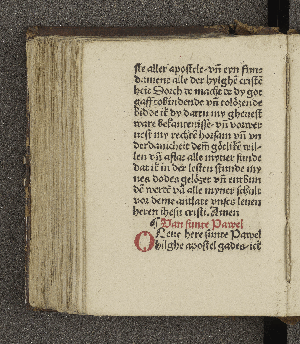 ste aller apostele· vn̄ eyn fun-
dament alle der hylghē cristē
heit Dorch de macht de dy got
gaff to bindende vn̄ to lözende
Bidde ik dy daru my ghenest
ware bekantenisse· vn̄ vorwer
my rechtē vn̄ vn
dem̄ gotlikē wil-
len vn̄ aflat alle myner sunde
dat ik in der lesten stunde my
nes dodes gelözet vn̄ enbun
dē werdē vā alle myner schult
vor deme antlate vnses leuen
heren ihesu cristi. Amen
¶ Van sunte Pawel
O Leue here sunte Pawel
hilghe apostel gades· ick